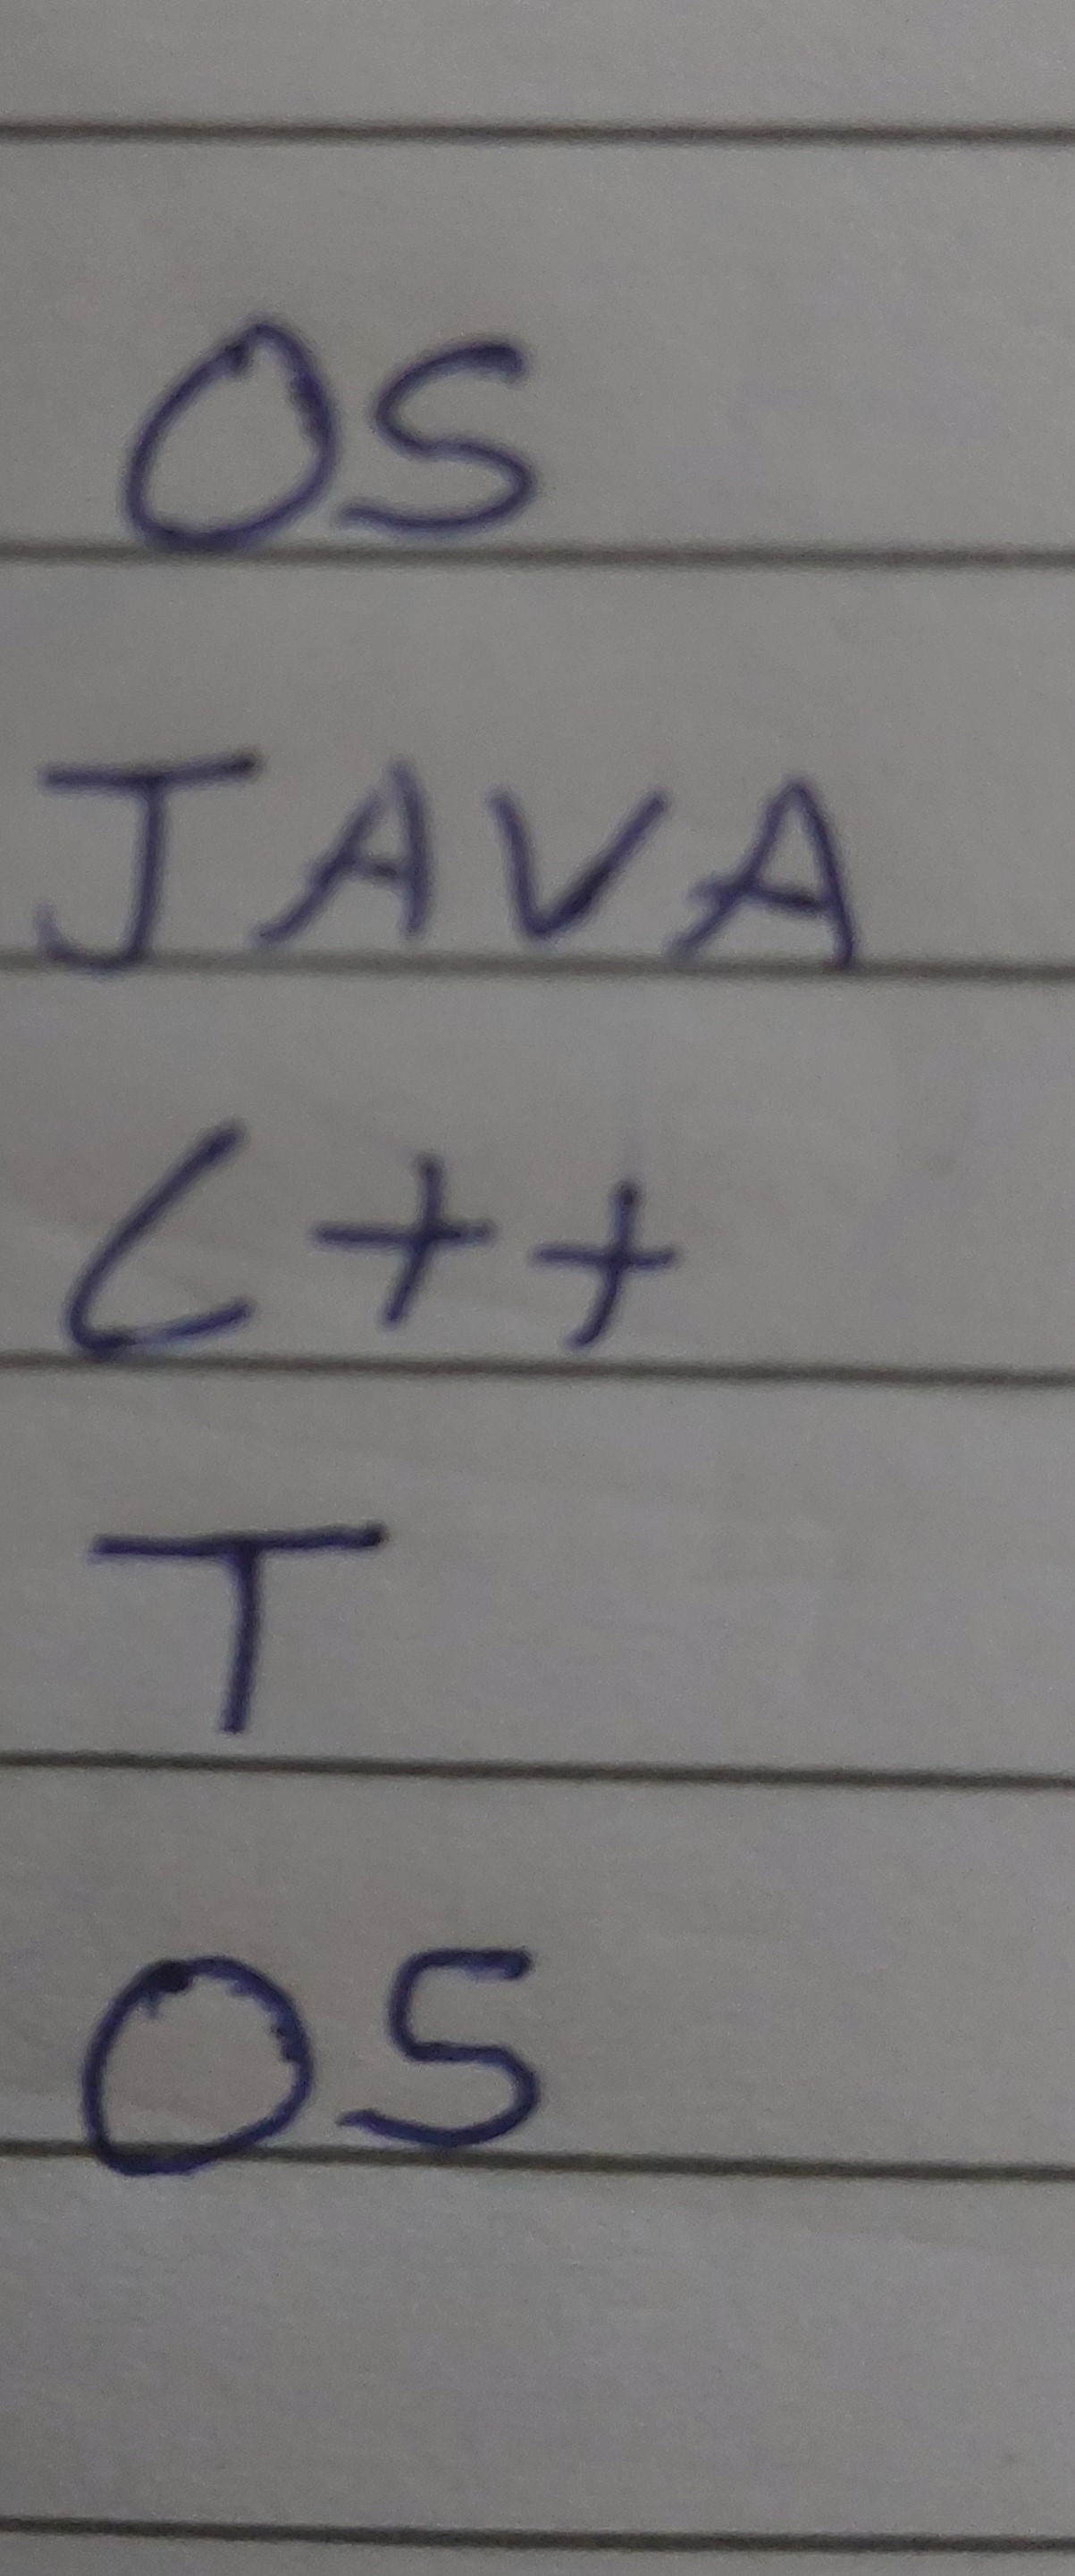 OS
JAVA
C++
T
OS